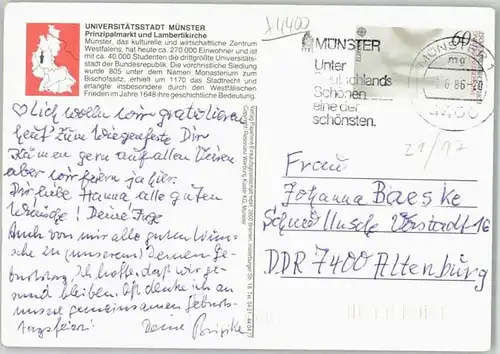 UNIVERSITÄTSSTADT MÜNSTER
Prinzipalmarkt und Lambertikirche
Münster, das kulturelle und wirtschaftliche Zentrum
Westfalens, hat heute ca. 270.000 Einwohner und ist
mit ca. 40.000 Studenten die drittgrößte Universitäts-
stadt der Bundesrepublik. Die vorchristliche Siedlung
wurde 805 unter dem Namen Monasterium zum
Bischofssitz, erhielt um 1170 das Stadtrecht und
erlangte insbesondere durch den Westfälischen
Frieden im Jahre 1648 ihre geschichtliche Bedeutung.
Dich wolln wir gratulieren
heut' zum Wiegenfeste Dir
kämen gern auf allen Vieren
aber wir feiern ja hier.
Dir liebe Hanna alle guten
Wünsche! Deine
Auch von mir alle guten Wün-
sche zu (unserem) Deinem Ge-
burtstag. Ich hoffe, daß wir ge-
sund bleiben. Oft denke ich an
unsere gemeinsamen Geburts-
tagsfeiern! Deine Brigitte
MÜNSTER
Unter
Deutschlands
Schönen
eine der
schönsten.
60
MÜNSTER
6.86-20
4400
21/17
Frau
Johanna Baeske
DDR 7400 Altenburg